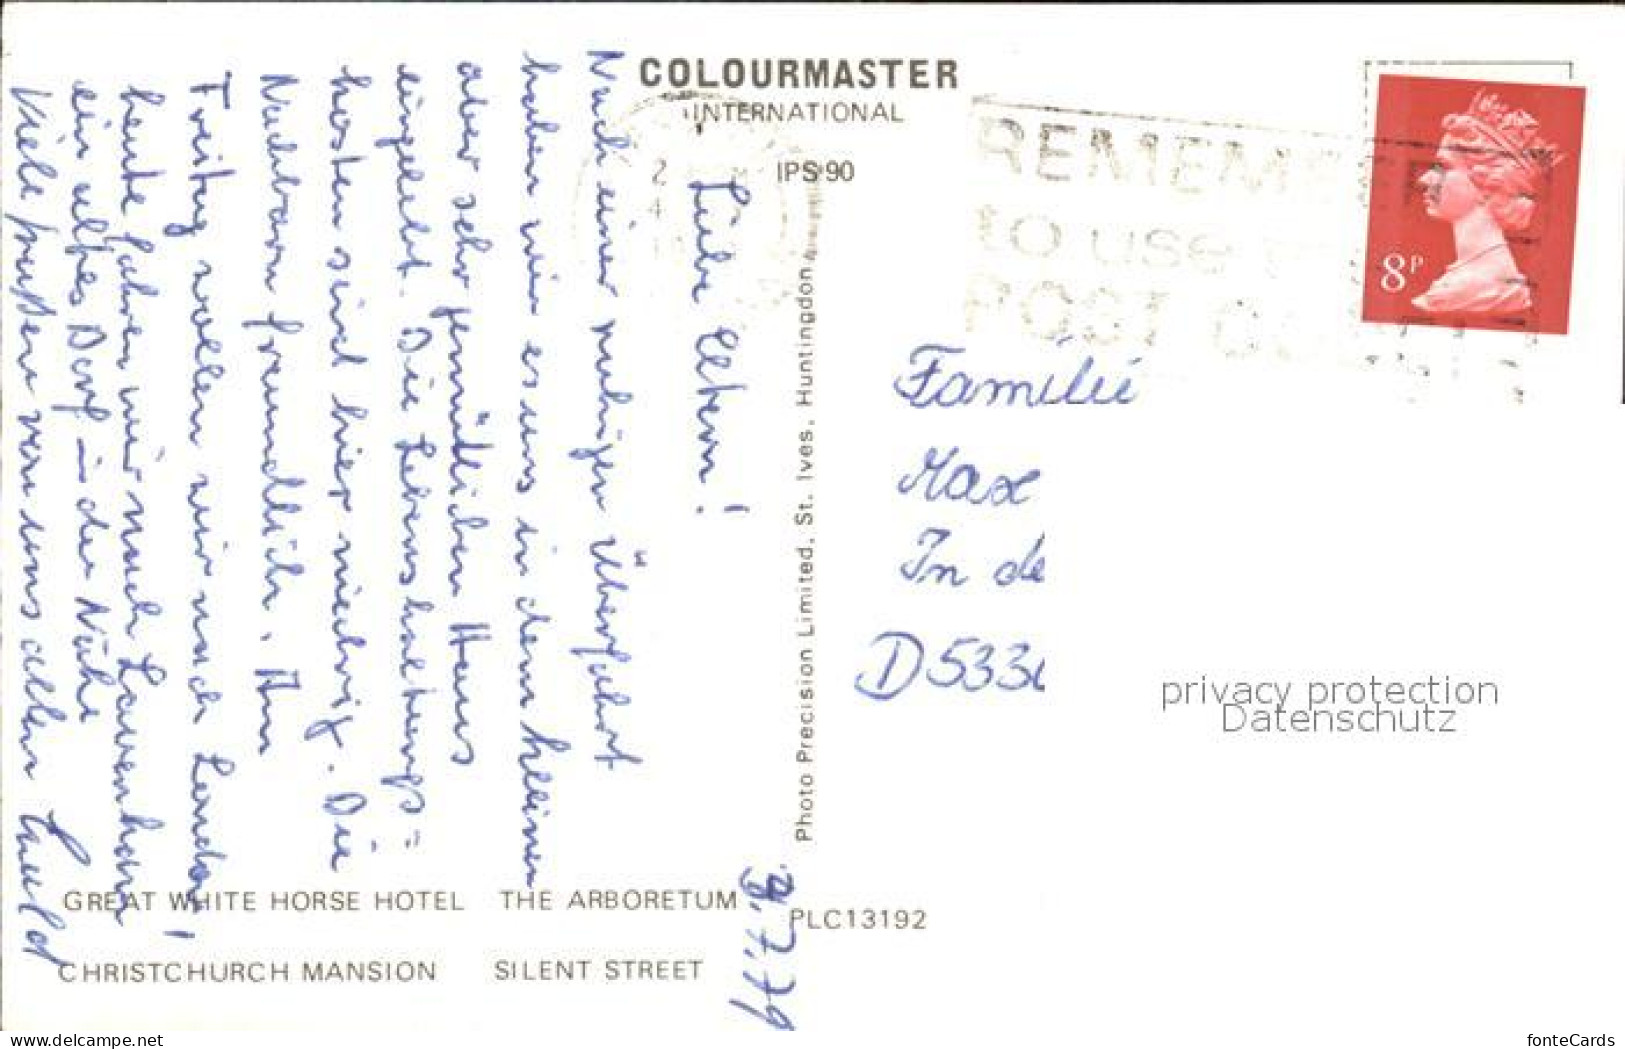 COLOURMASTER
INTERNATIONAL
IPS 90
REMEM
to use
POST CO
8P
9.7.79
Liebe Eltern!
Nach einer ruhigen Überfahrt
haben wir es uns in dem kleinen
aber sehr gemütlichen Haus
eingelebt. Die Lebenshaltungs=
kosten sind hier niedrig. Die
Nachbarn freundlich. Am
Freitag wollen wir nach London!
heute fahren wir nach Lavenham
ein altes Dorf in der Nähe
Viele Grüße von uns allen
Familie
Max
In de
D 533
Photo Precision Limited, St. Ives, Huntingdon
GREAT WHITE HORSE HOTEL THE ARBORETUM
PLC13192
CHRISTCHURCH MANSION SILENT STREET
privacy protection
Datenschutz
www.delcampe.net
fonteCards